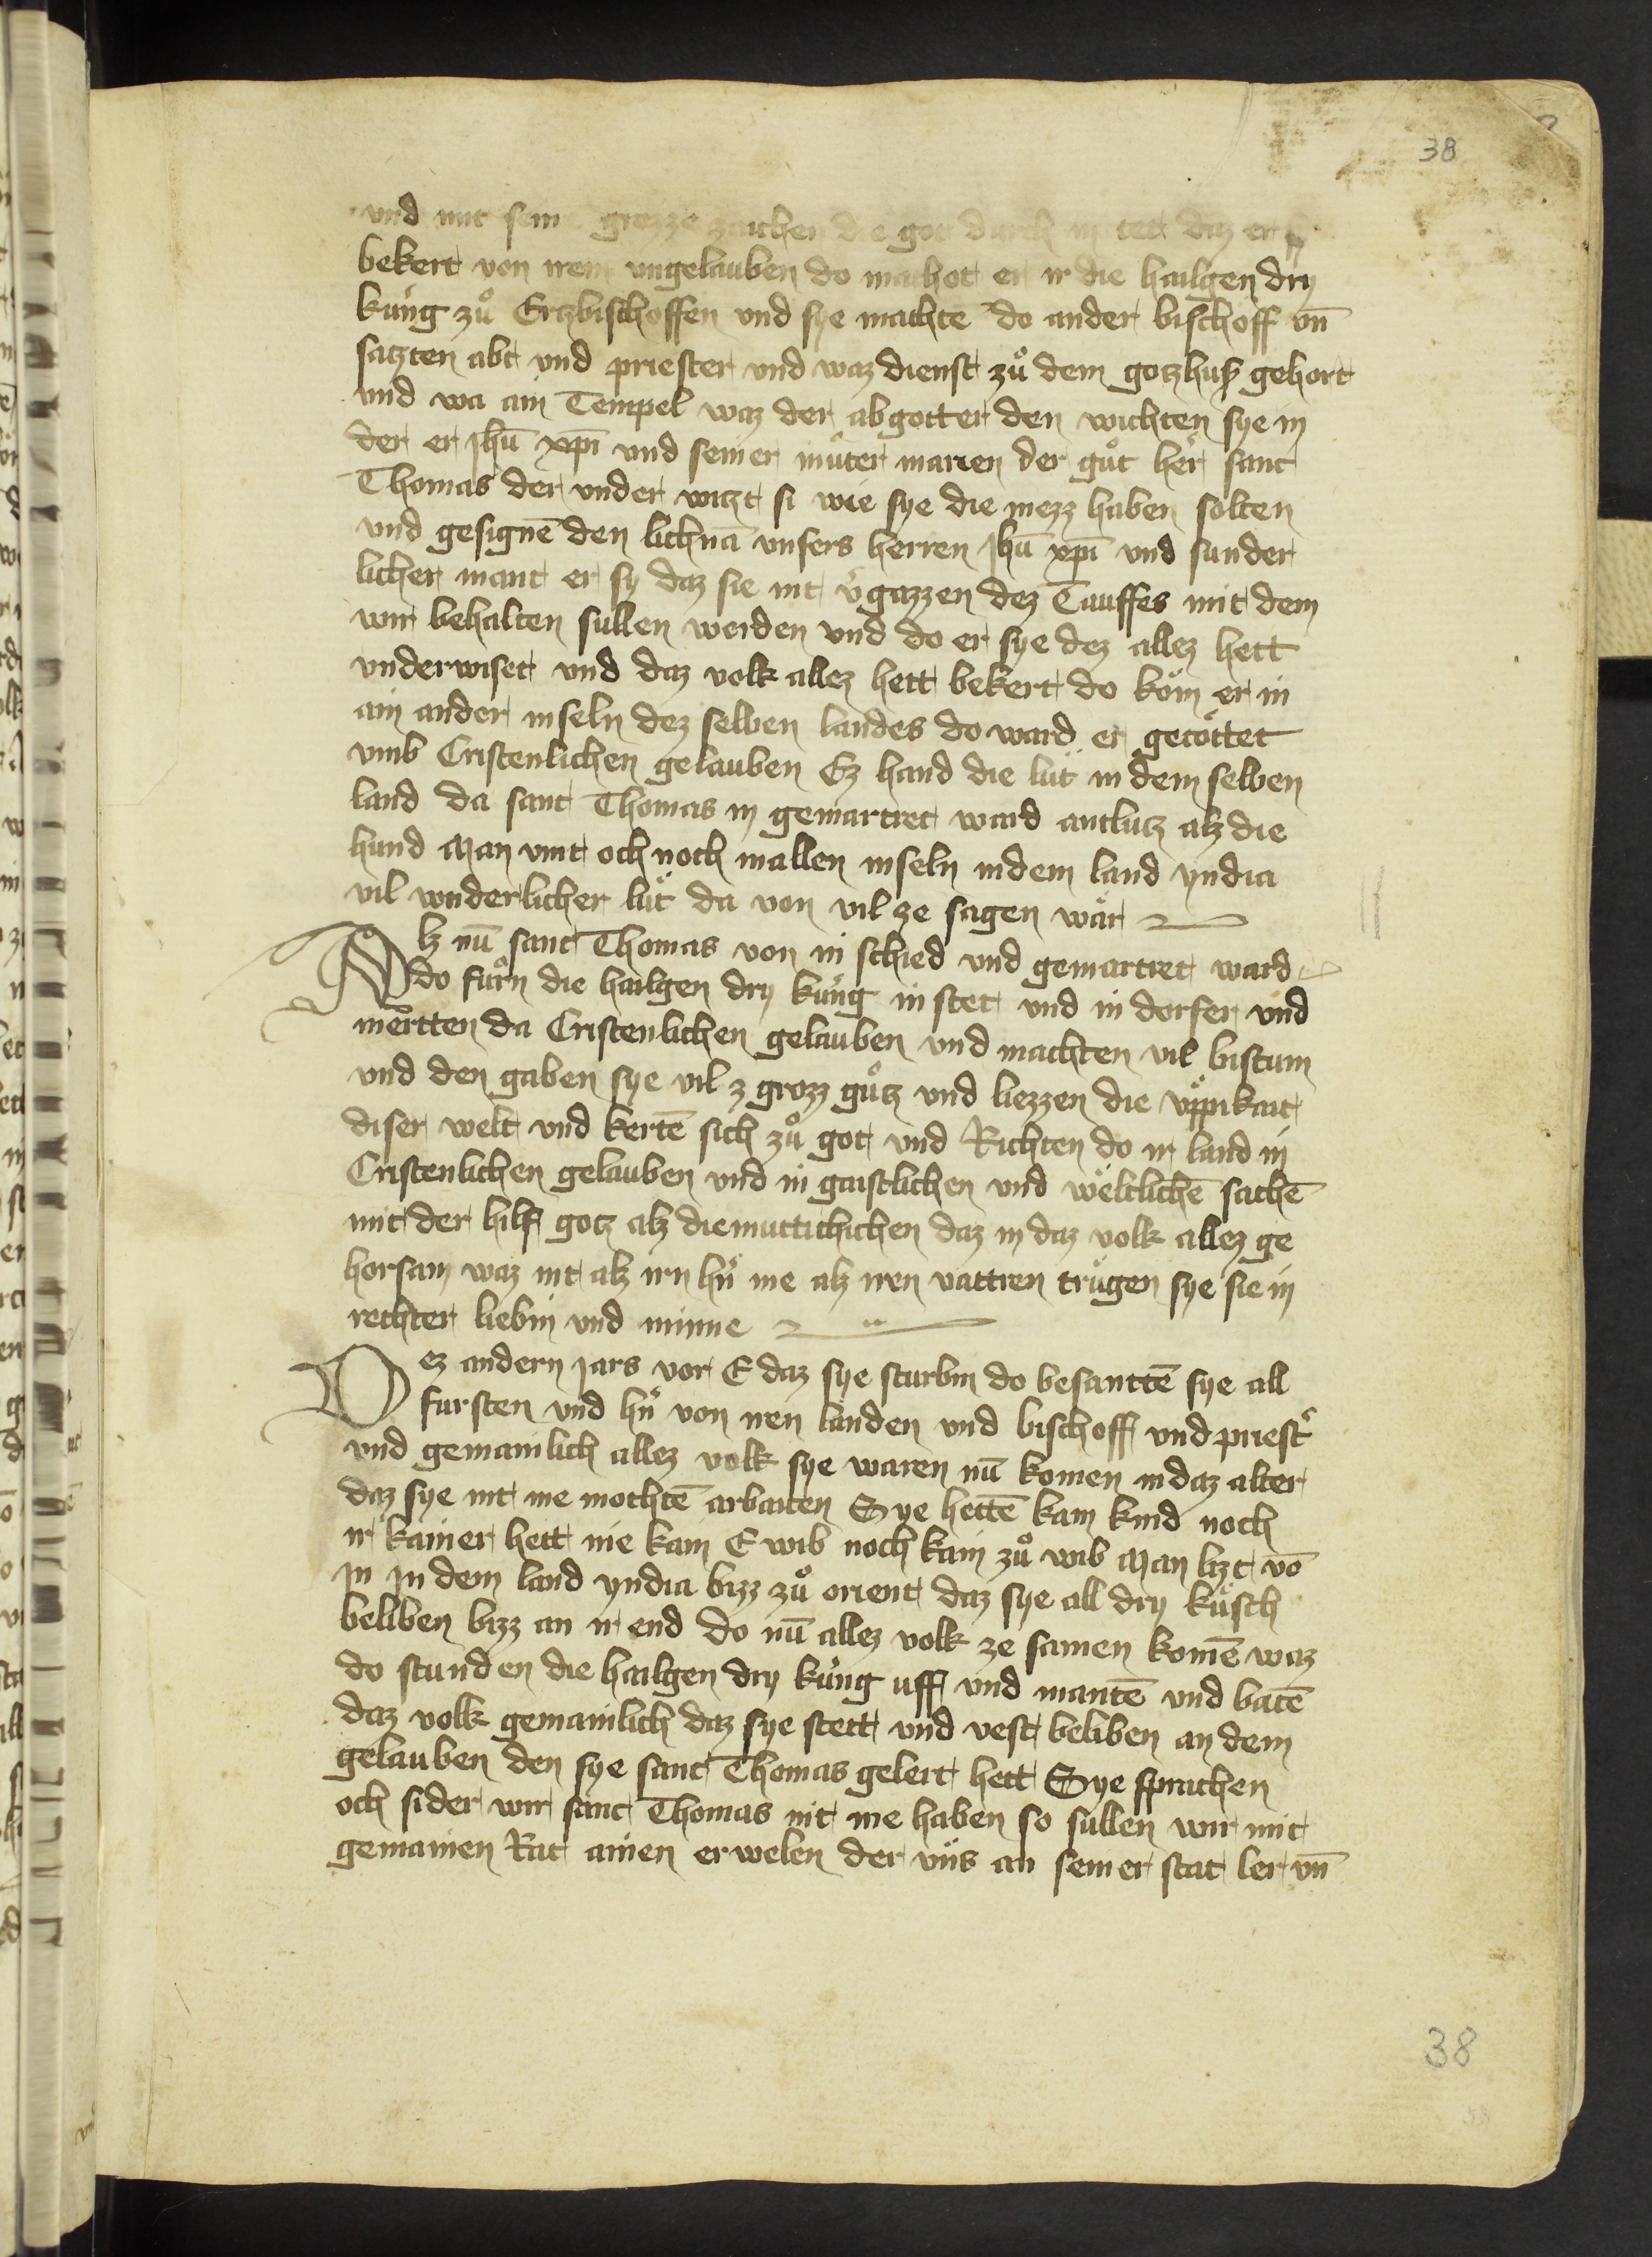 38
und mit sein grozze zaichen die got durch in tett daz er
bekert von irem ungelauben do machot er ir die hailgen dry
küng zů Ertzbischoffen und sye machtē do ander bischoff vn̄
satzten abt und priester und waz dienst zů dem gotzhuß gehort
und wa ain Tempel waz der abgotter den wichten sye in
der er Jhū xp̄i und seiner můter marien der gůt her sant
Thomas der under witzt si wie sye die mezz haben solten
und gesignē den lichnā unsers herren Jhū xp̄i und sunder
licher mant er sy daz sie nit v̓gazzen dez Tauffes mit dem
wir behalten sullen werden und do er sye dez allez hett
underwiset und daz volk allez hett bekert do kom er in
ain ander inseln dez selben landes do ward er getöttet
umb Cristenlichen gelauben Ez hand die lüt in dem selben
land da sant Thomas in gemartret ward antlutz alz die
hund Man vint och noch in allen inseln in dem land yndia
vil wnderlicher lüt da von vil ze sagen wär
Alz nū sant Thomas von in schied und gemartret ward
do fůrn die hailgen dry küng in stet und in dorfer und
mertten da Cristenlichen gelauben und machten vil bistum
und den gaben sye vil z grozz gůtz und liezzen die üppikait
diser welt und kertē sich zů got und Richten do ir land in
Cristenlichen gelauben und in gaistlichen und weltlichē sachē
mit der hilf gotz alz diemuttichichen daz in daz volk allez ge
horsam waz nit alz irn hn̓ me alz iren vattren trůgen sye sie in
rechter liebin und minne
Dez andern jars vor E daz sye sturbin do besanttē sye all
fursten und hn̓ von iren landen und bischoff und priest̓
und gemainlich allez volk sye waren nū komen in daz alter
daz sye nit me mochtē arbaiten Sye hettē kain kind noch
ir kainer hett nie kain E wib noch kain zů wib Man lizt vō
in in dem land yndia bizz zů orient daz sye all dry küsch
beliben bizz an ir end do nū allez volk ze samen komē waz
do stunden die hailgen dry küng uff und mantē und batē
daz volk gemainlich daz sye stett und vest beliben an dem
gelauben den sye sant Thomas gelert hett Sye sprachen
och sider wir sant Thomas nit me haben so sullen wir mit
gemainen Rat ainen erwelen der uns an seiner stat ler vn̄
38